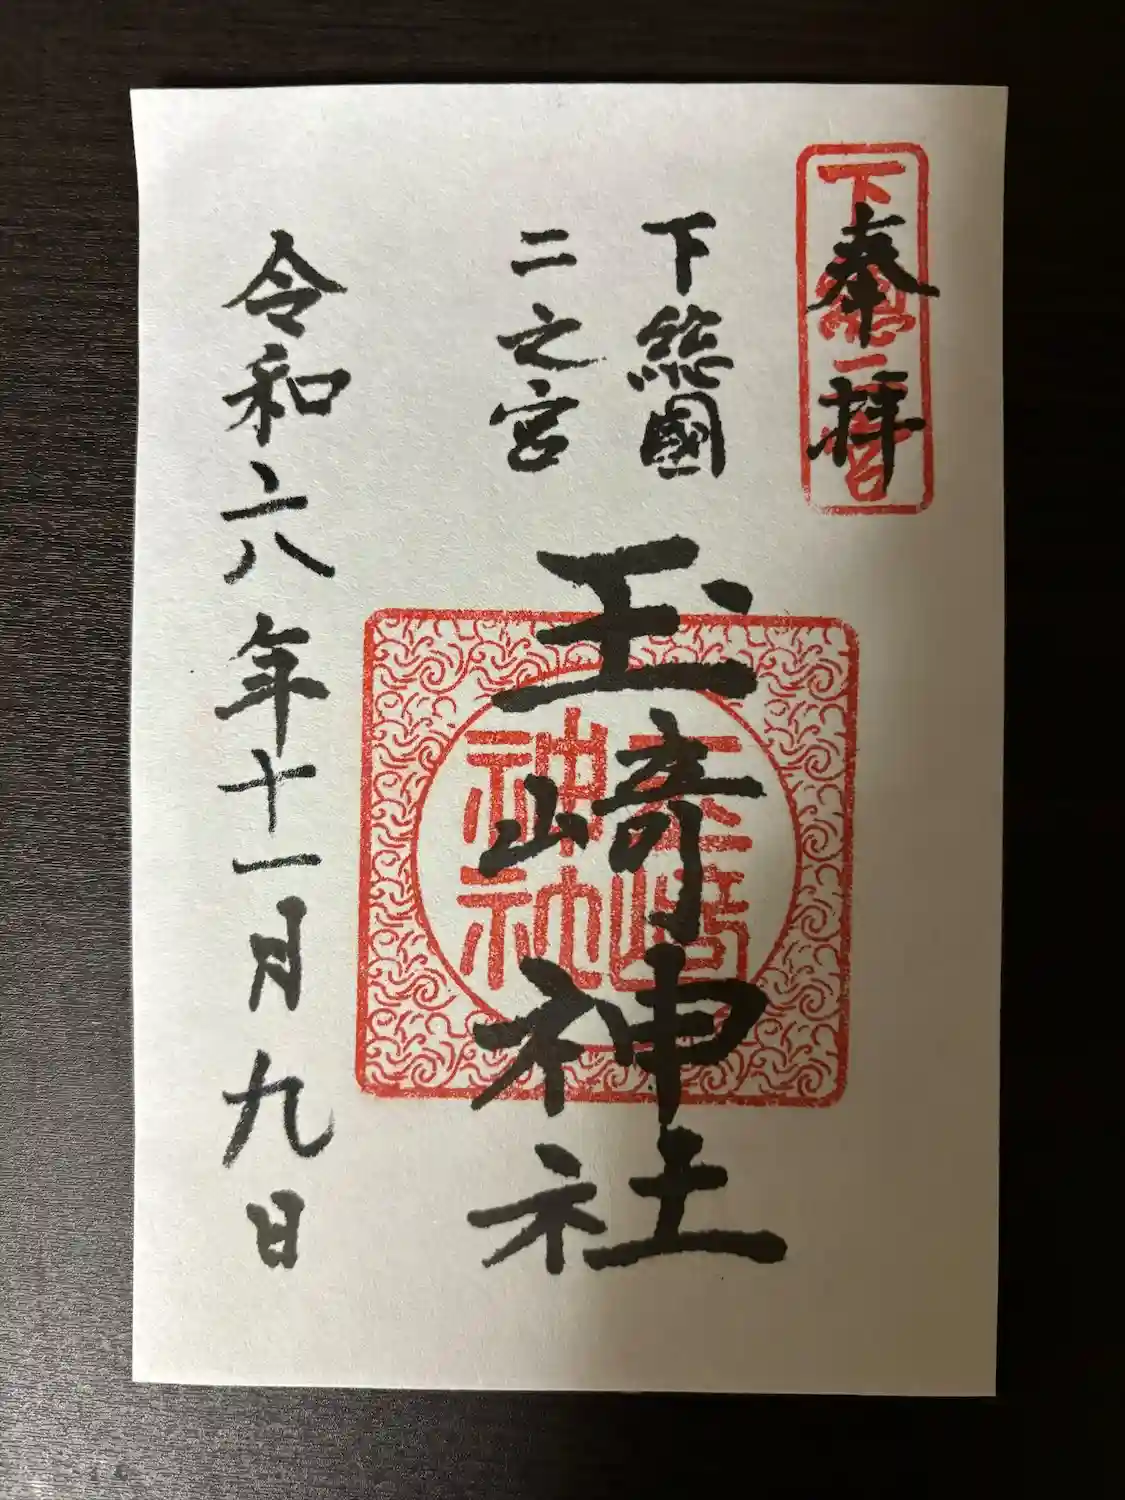 奉拝
下総二宮
下總國
二之宮
玉﨑神社
玉﨑神社
令和六年十一月九日